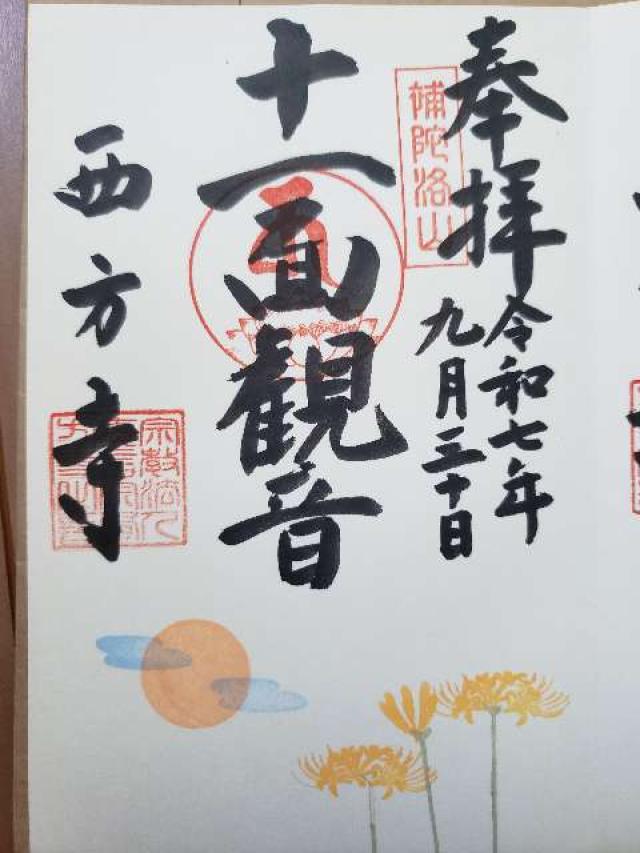 奉拝
令和七年
九月三十日
補陀洛山
十一面観音
西方寺
宗教法人